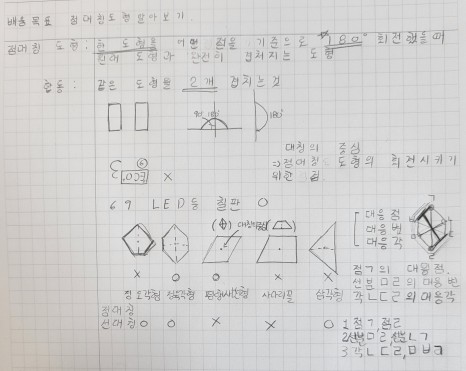 배울 목표 점대칭도형 알아보기
점대칭 도형: 한 도형을 어떤 점을 기준으로 180° 회전했을 때
원래 도형과 완전히 겹쳐지는 도형
합동: 같은 도형을 2개 겹치는 것
90° 180° 180°
대칭의 중심
⇒ 점대칭 도형의 회전시키기
위한 점.
3 ×
69 LED등 칠판 O
대응점
대응변
대응각
× O O × ×
정오각형 정육각형 평행사변형 사다리꼴 삼각형
점ㄱ의 대응점.
선분ㅁㄹ의 대응변
각ㄴㄷㄹ의 대응각
점대칭
선대칭 O O × × O
1 점ㄱ, 점ㄹ
2 선분ㅁㄹ, 선분ㄴㄱ
3 각ㄴㄷㄹ, ㅁㅂㄱ